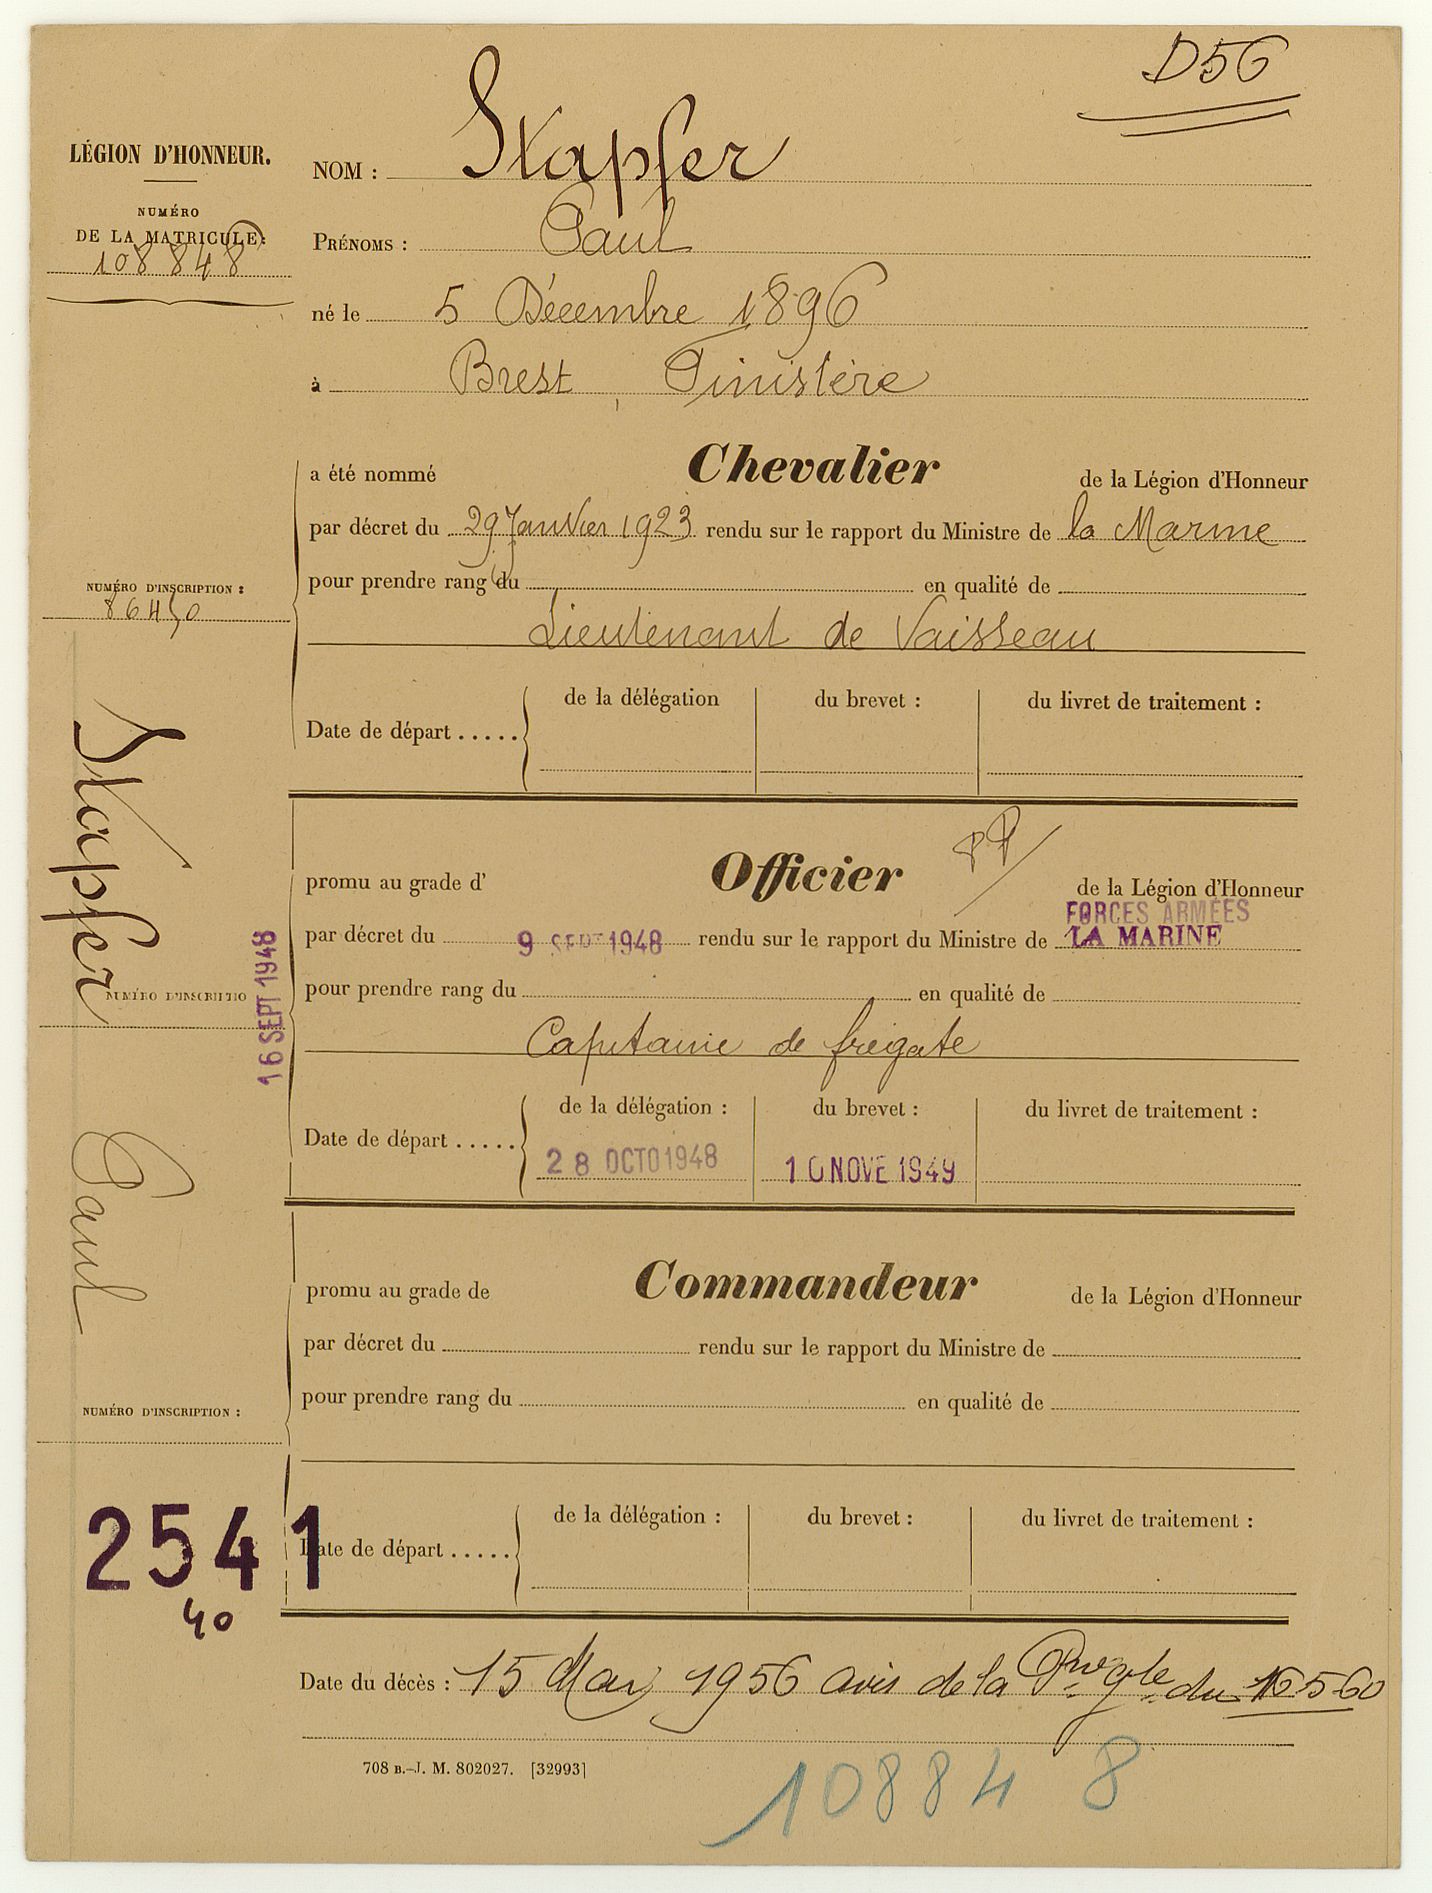 D56
LÉGION D'HONNEUR.
NUMÉRO
DE LA MATRICULE:
108848
NOM : Stapfer
PRÉNOMS : Paul
né le 5 Décembre 1896
à Brest, Finistère
a été nommé Chevalier de la Légion d'Honneur
par décret du 29 Janvier 1923 rendu sur le rapport du Ministre de la Marine
pour prendre rang du en qualité de
NUMÉRO D'INSCRIPTION :
Lieutenant de Vaisseau
de la délégation du brevet : du livret de traitement :
Date de départ .....
Stapfer Paul
promu au grade d' Officier de la Légion d'Honneur
FORCES ARMÉES
par décret du 9 SEPT 1948 rendu sur le rapport du Ministre de LA MARINE
pour prendre rang du en qualité de
NUMÉRO D'INSCRIPTIO
16 SEPT 1948
Capitaine de frégate
de la délégation : du brevet : du livret de traitement :
Date de départ ..... 28 OCTO 1948 10 NOVE 1949
promu au grade de Commandeur de la Légion d'Honneur
par décret du rendu sur le rapport du Ministre de
pour prendre rang du en qualité de
NUMÉRO D'INSCRIPTION :
de la délégation : du brevet : du livret de traitement :
Date de départ .....
2541
40
Date du décès : 15 Mars 1956 avis de la du 16 5 60
708 B.-J. M. 802027. [32993]
108848